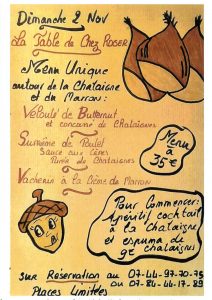 Dimanche 2 Nov
La Table de Chez Roser
Menu Unique
autour de la Chataîgne
et du Marron:
Velouté de Butternut
et concassé de Chataîgnes
Suprême de Poulet
Sauce aux Cèpes
Purée de Chataîgnes
Vacherin à la Crème de Marron
Menu
à
35€
Pour Commencer:
Apéritif cocktail
à la Chataîgne
et espuma de
chataîgnes
Sur Reservation au 07-44-97-70-75
ou 07-84-44-17-89
Places Limitées